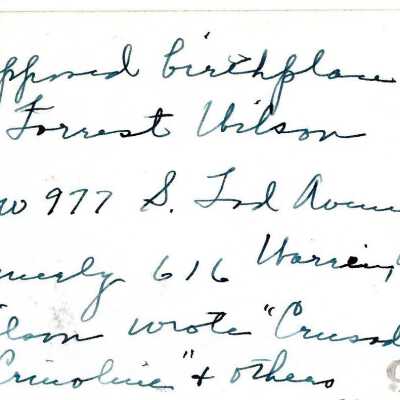 pposed birthplace
Forrest Wilson
w 977 S. Tod Avenu
merly 616 Warren,
ilson wrote "Crusad
Crinoline" & others